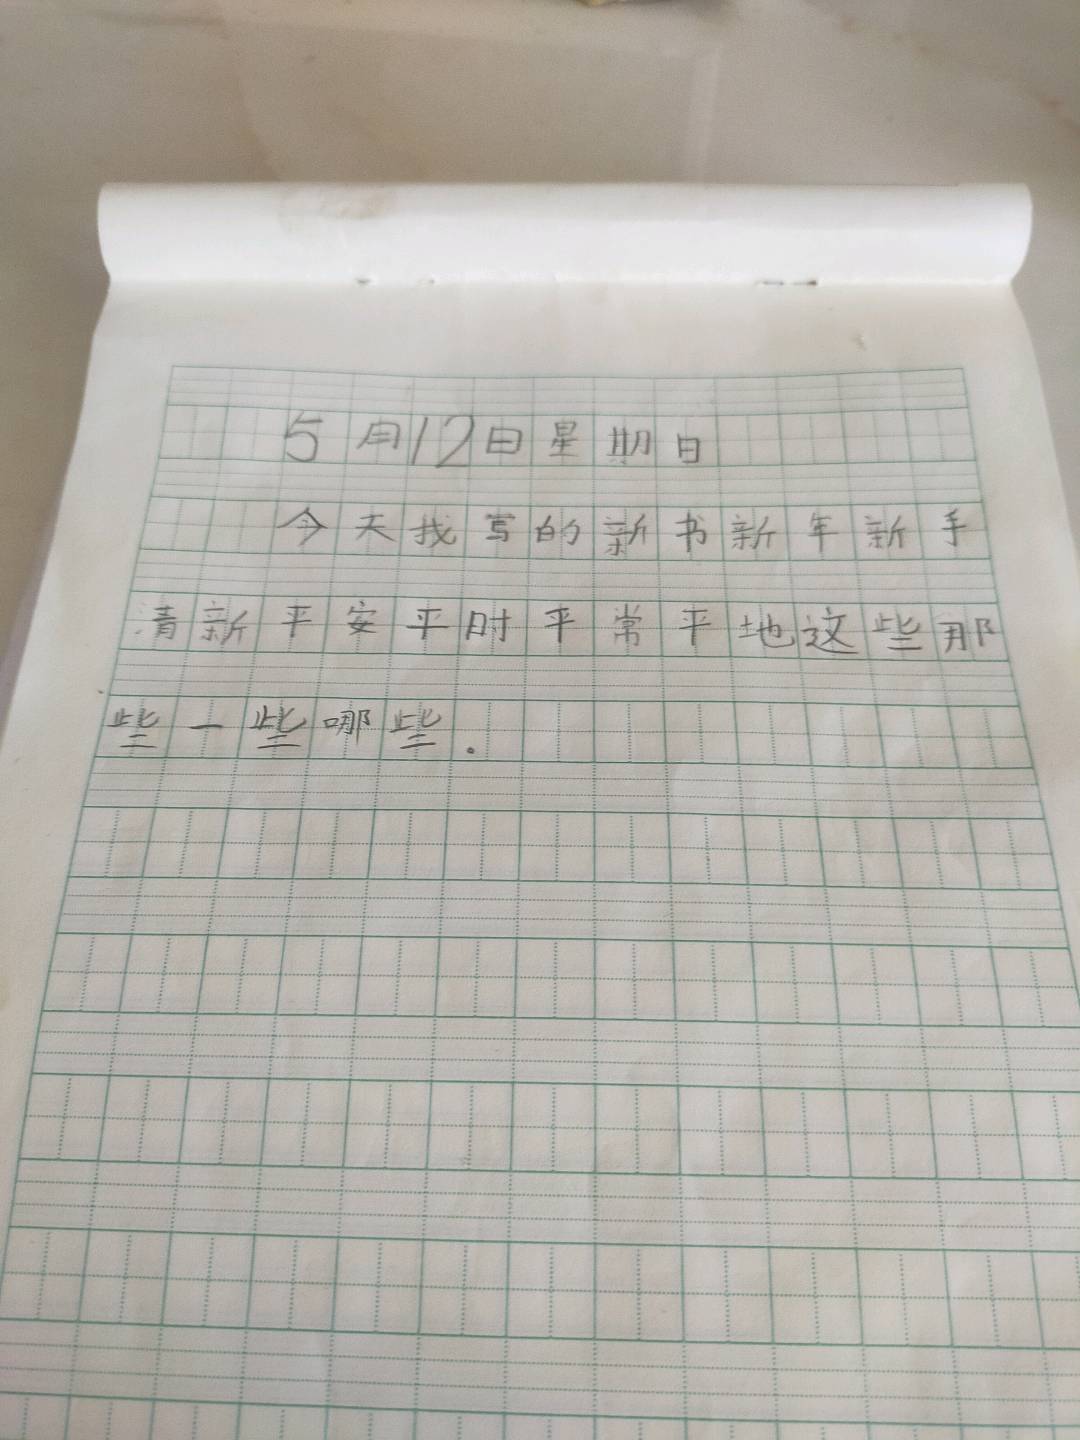 5月12日星期日
今天我写的新书新年新手
清新平安平时平常平地这些那
些一些哪些.